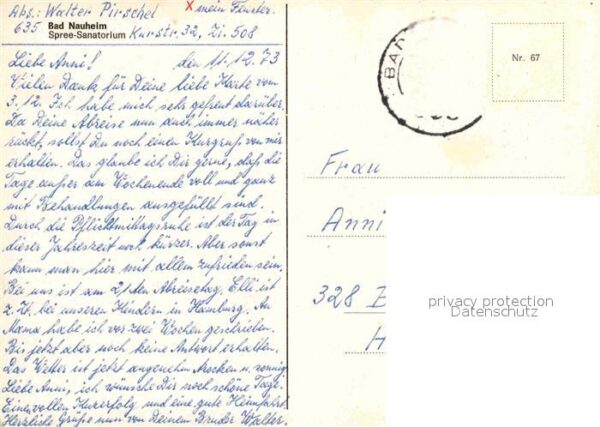 Abs.: Walter Pirschel x mein Fenster.
635 Bad Nauheim
Spree-Sanatorium Kurstr. 32, Zi. 508
Liebe Anni! den 11.12.73
Vielen Dank für Deine liebe Karte vom
3.12. Ich habe mich sehr gefreut darüber.
Da Deine Abreise nun auch immer näher
rückt, sollst Du noch einen Kurgruß von mir
erhalten. Das glaube ich Dir gerne, daß die
Tage außer am Wochenende voll und ganz
mit Behandlungen ausgefüllt sind.
Durch die Pflichtmittagsruhe ist der Tag in
dieser Jahreszeit noch kürzer. Aber sonst
kann man hier mit allem zufrieden sein.
Bei uns ist am 21ten Abreisetag. Elli ist
z. Zt. bei unseren Kindern in Hamburg. An
Mama habe ich vor zwei Wochen geschrieben.
Bis jetzt aber noch keine Antwort erhalten.
Das Wetter ist jetzt angenehm trocken u. sonnig.
Liebe Anni, ich wünsche Dir noch schöne Tage.
Einen vollen Kurerfolg und eine gute Heimfahrt.
Herzliche Grüße nun von Deinem Bruder Walter.
BA
Nr. 67
Frau
Anni
328 B
H
privacy protection
Datenschutz